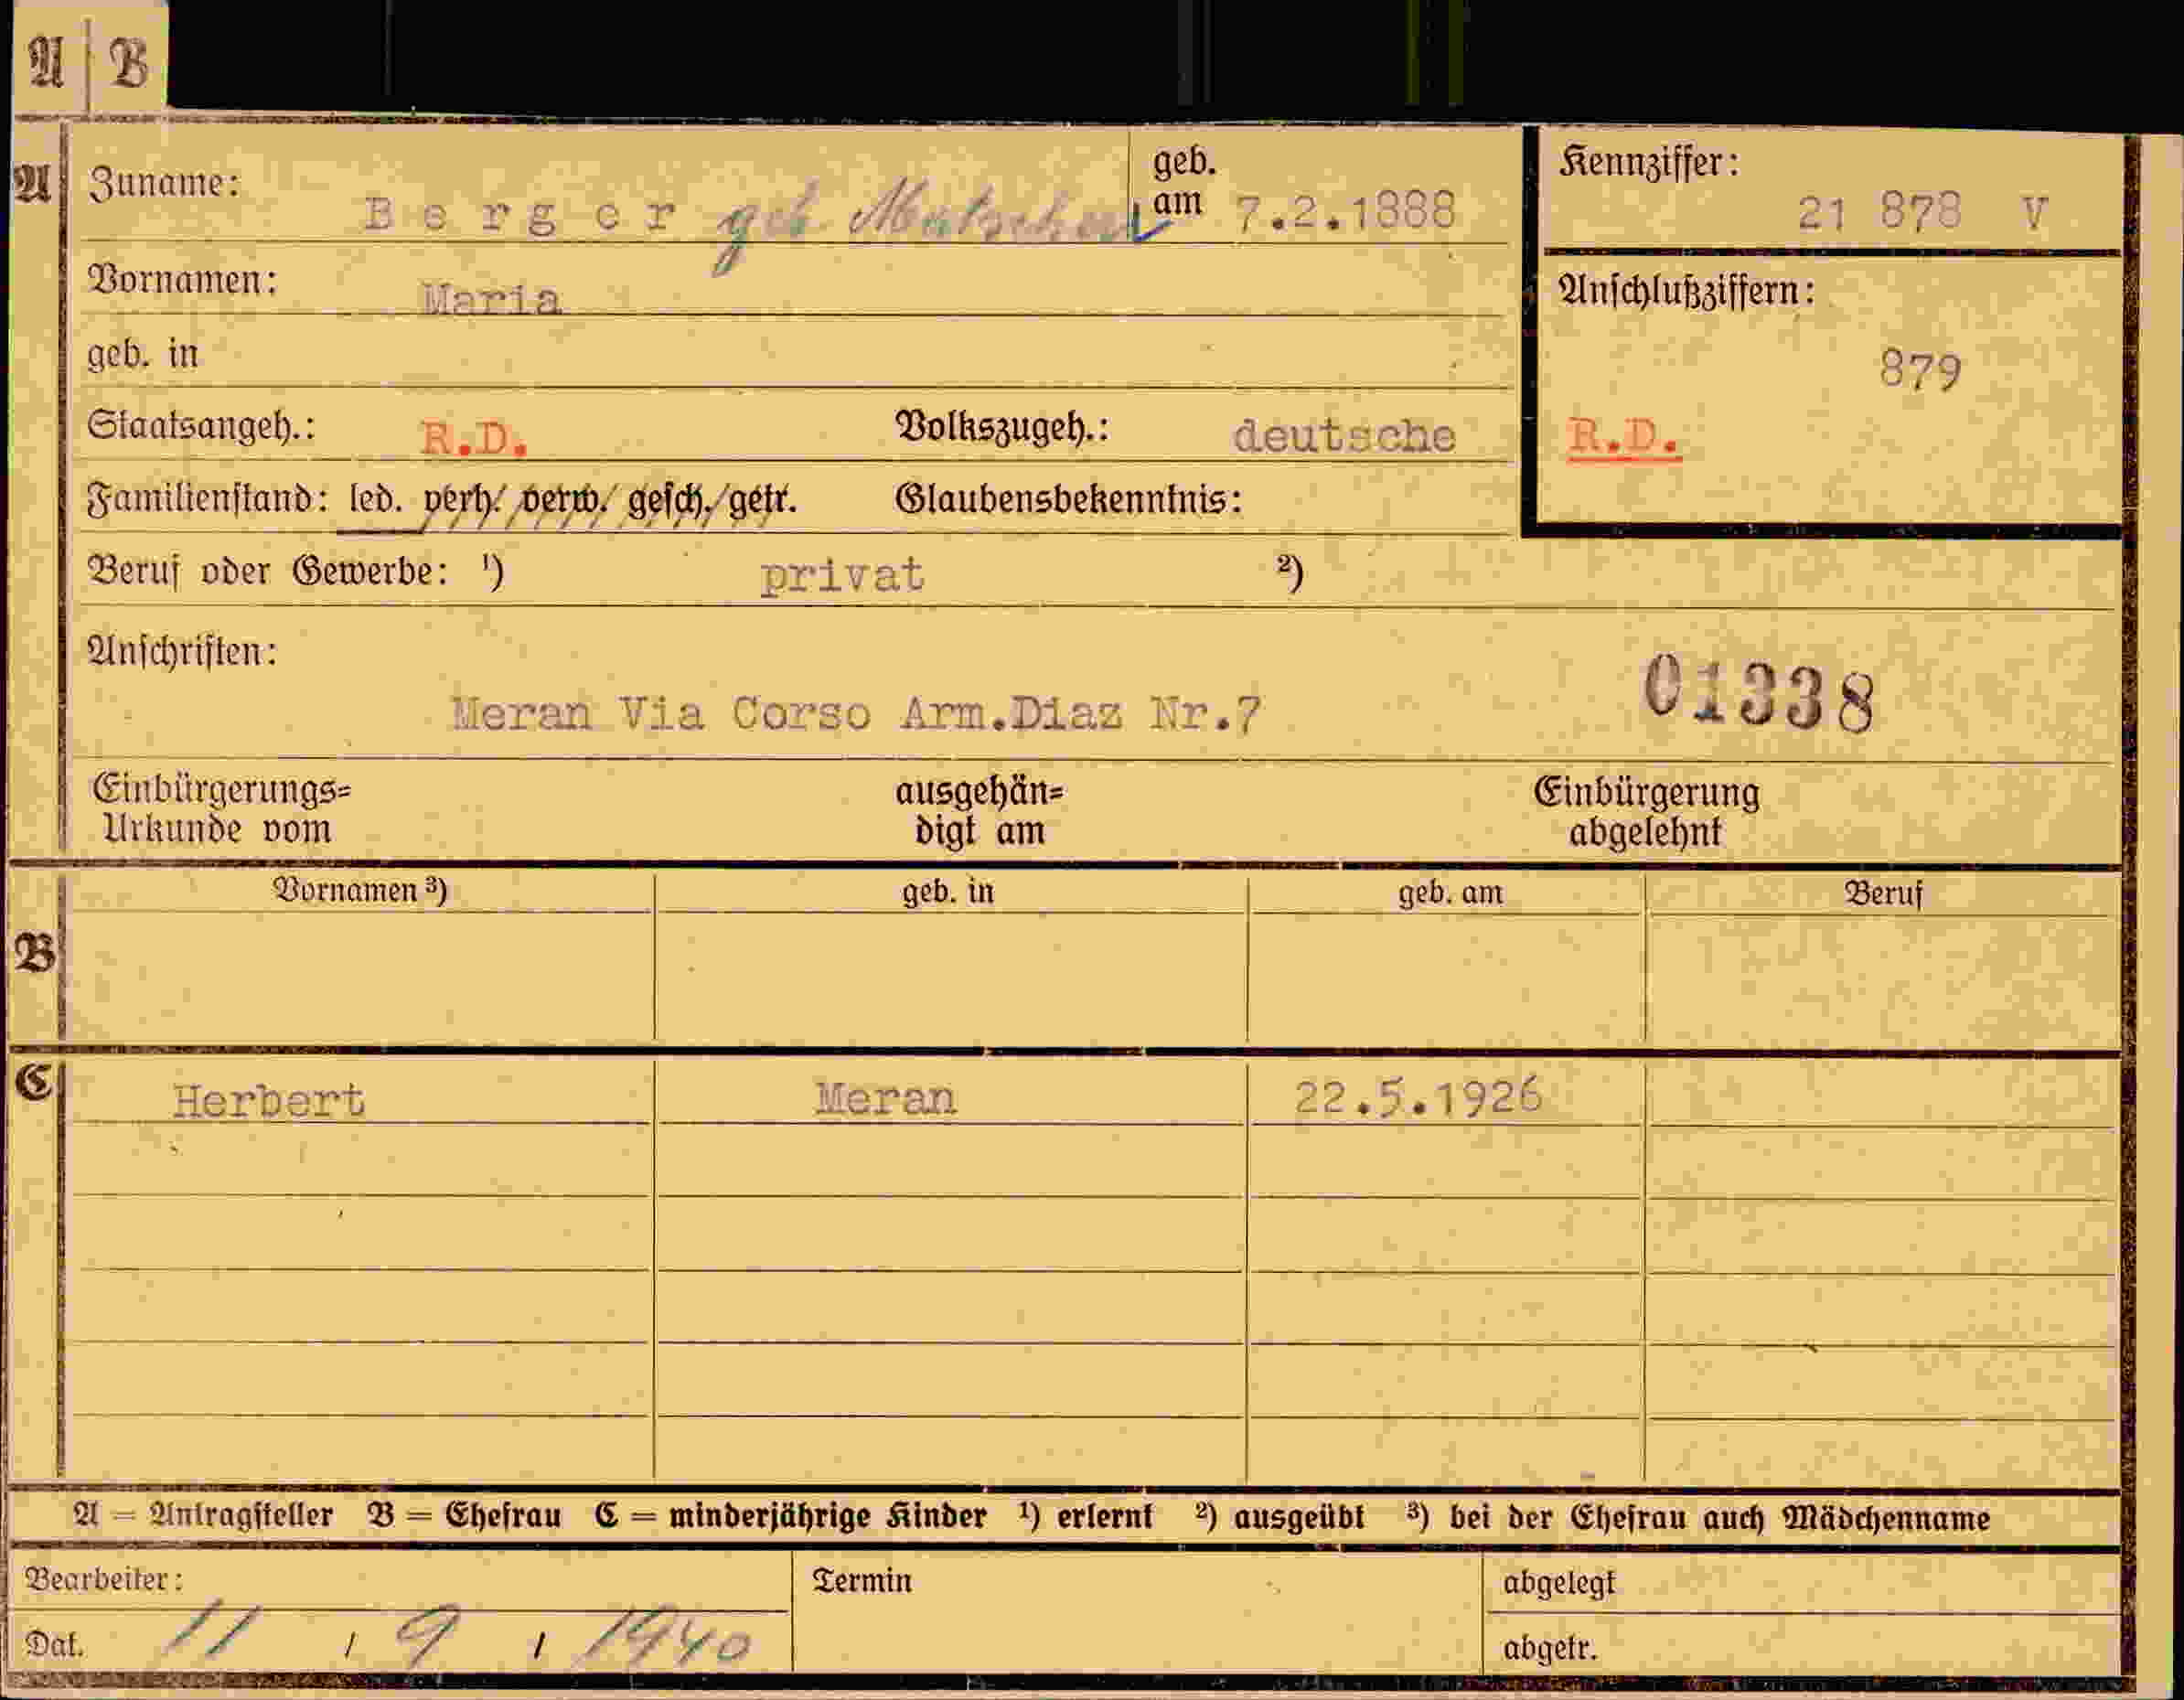 A | B
A
Zuname: B e r g e r geb
geb. am 7.2.1888
Kennziffer: 21 878 V
Vornamen: Maria
Anschlußziffern: 879
geb. in
Staatsangeh.: R.D. Volkszugeh.: deutsche
R.D.
Familienstand: led. verh. verw. gesch. getr. Glaubensbekenntnis:
Beruf oder Gewerbe: ¹) privat ²)
Anschriften:
01338
Meran Via Corso Arm.Diaz Nr.7
Einbürgerungs= ausgehän= Einbürgerung
Urkunde vom digt am abgelehnt
Vornamen ³) geb. in geb. am Beruf
B
C
Herbert Meran 22.5.1926
A = Antragsteller B = Ehefrau C = minderjährige Kinder ¹) erlernt ²) ausgeübt ³) bei der Ehefrau auch Mädchenname
Bearbeiter: Termin abgelegt
Dat. 11 / 9 / 1940 abgetr.